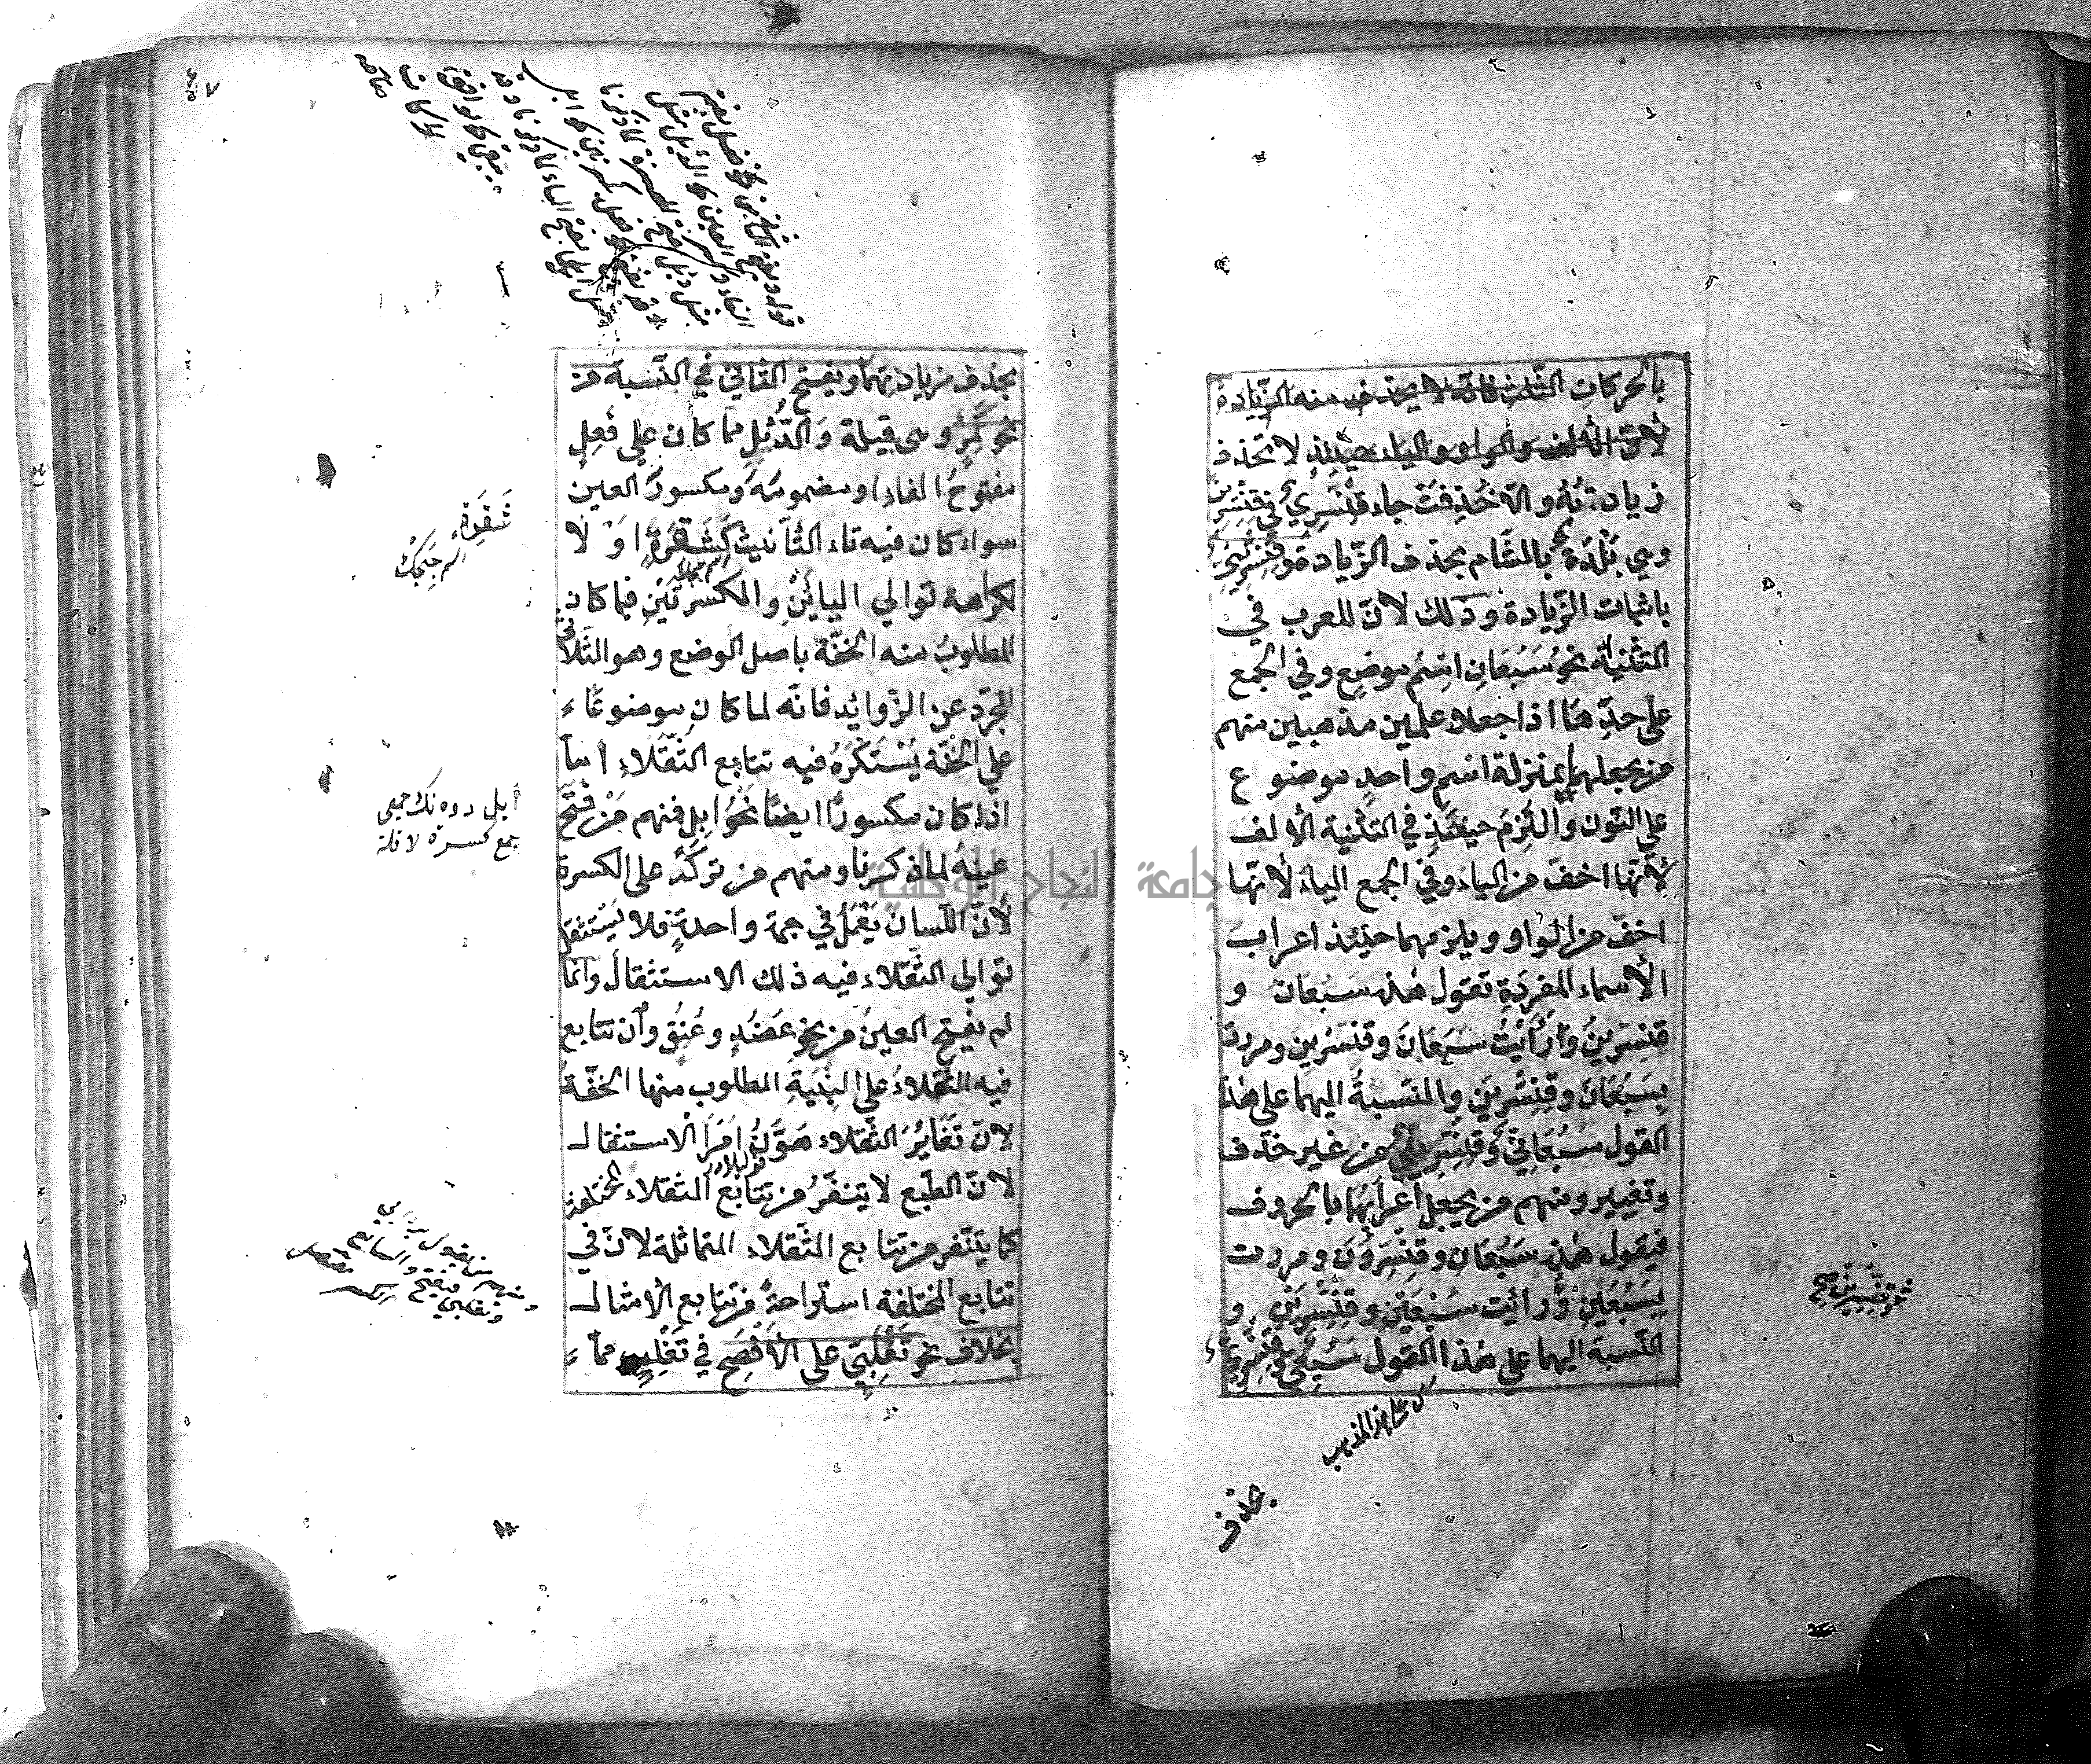 بالحركات الثلث فانه لا يحذف منه الزيادة
لان الالف والواو والياء حينئذ لا تحذف
زيادته والا حذفت جاء قنسري في قنسرين
وهي بلدة بالشام بحذف الزيادة وقنسريني
باثبات الزيادة وذلك لان للعرب في
التثنية نحو سبعان اسم موضع وفي الجمع
على حدها اذا جعلا علمين مذهبين منهم
من يجعلهما بمنزلة اسم واحد موضوع
على النون والتزم حينئذ في التثنية الالف
لانها اخف من الياء وفي الجمع الياء لانها
اخف من الواو ويلزمهما حينئذ اعراب
الاسماء المفردة تقول هذه سبعان و
قنسرين ورأيت سبعان وقنسرين ومررت
بسبعان وقنسرين والنسبة اليهما على هذا
القول سبعاني وقنسريني من غير حذف
وتغيير ومنهم من يجعل اعرابهما بالحروف
فيقول هذه سبعان وقنسرون ومررت
بسبعين ورأيت سبعين وقنسرين و
النسبة اليهما على هذا القول سبعي وقنسري
بحذف
بحذف زيادتهما ويفتح الثاني في النسبة من
نحو نمر وهي قبيلة والدئل مما كان على فعل
مفتوح الفاء او مضمومه ومكسور العين
سواء كان فيه تاء التأنيث كشقرة او لا
لكراهة توالي اليائين والكسرتين فيما كان
المطلوب منه الخفة باصل الوضع وهو الثلاثي
المجرد عن الزوائد فانه لما كان موضوعا
على الخفة يستكره فيه تتابع الثقلاء اما
اذا كان مكسورا ايضا نحو ابل فمنهم من فتح
عينه لما ذكرنا ومنهم من تركه على الكسرة
لان اللسان يعمل في جهة واحدة فلا يستثقل
توالي الثقلاء فيه ذلك الاستثقال وانما
لم يفتح العين من نحو عضد وعنق وان تتابع
فيه الثقلاء على البنية المطلوب منها الخفة
لان تغاير الثقلاء هون امر الاستثقال
لان الطبع لا يتنفر من تتابع الثقلاء المختلفة
كما يتنفر من تتابع الثقلاء المتماثلة لان في
تتابع المختلفة استراحة من تتابع الامثال
بخلاف نحو تغلبي على الافصح في تغلب مما
جامعة النجاح الوطنية